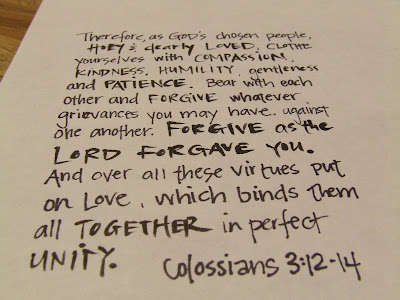 Therefore, as GOD'S chosen people,
HOLY & dearly LOVED, CLOTHE
yourselves with COMPASSION,
KINDNESS, HUMILITY, gentleness
and PATIENCE. Bear with each
other and FORGIVE whatever
grievances you may have against
one another. FORGIVE as the
LORD FORGAVE YOU.
And over all these virtues put
on Love, which binds them
all TOGETHER in perfect
UNITY. Colossians 3:12-14